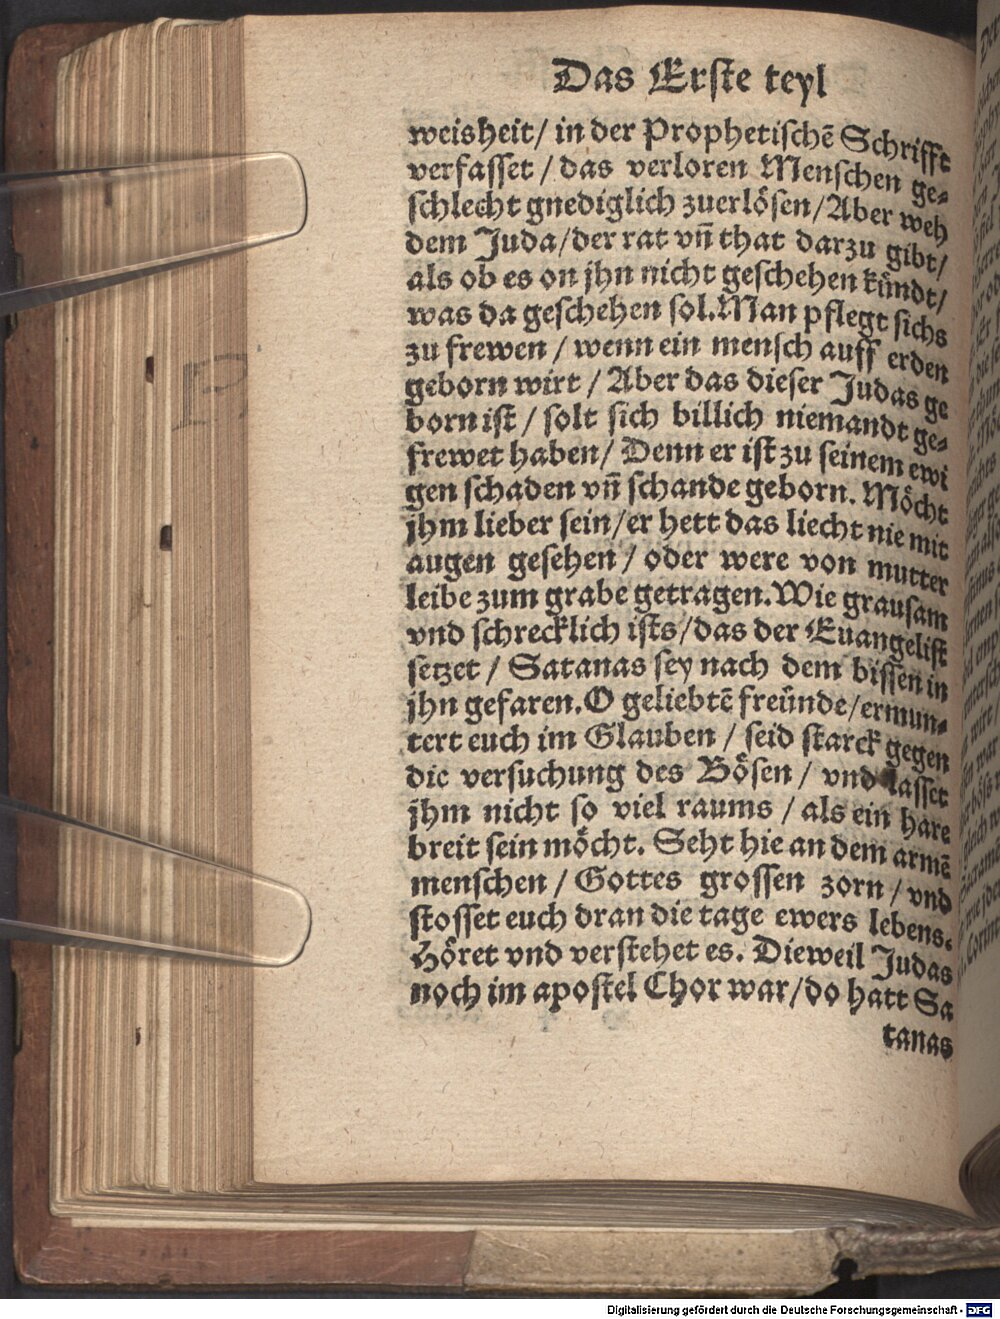 Das Erste teyl
weisheit/ in der Prophetischē Schrifft
verfasset / das verloren Menschen ge-
schlecht gnediglich zuerlösen/Aber weh
dem Juda/der rat vñ that darzu gibt/
als ob es on jhn nicht geschehen kündt/
was da geschehen sol. Man pflegt sichs
zu frewen / wenn ein mensch auff erden
geborn wirt / Aber das dieser Judas ge
born ist / solt sich billich niemandt ge-
frewet haben/ Denn er ist zu seinem ewi
gen schaden vñ schande geborn. Möcht
jhm lieber sein/er hett das liecht nie mit
augen gesehen / oder were von mutter
leibe zum grabe getragen. Wie grausam
vnd schrecklich ists/das der Euangelist
setzet / Satanas sey nach dem bissen in
jhn gefaren. O geliebtē freünde/ermun-
tert euch im Glauben / seid starck gegen
die versuchung des Bösen / vnd lasset
jhm nicht so viel raums / als ein hare
breit sein möcht. Seht hie an dem armē
menschen / Gottes grossen zorn / vnd
stosset euch dran die tage ewers lebens.
Höret vnd verstehet es. Dieweil Judas
noch im apostel Chor war/do hatt Sa
tanas
Digitalisierung gefördert durch die Deutsche Forschungsgemeinschaft - DFG